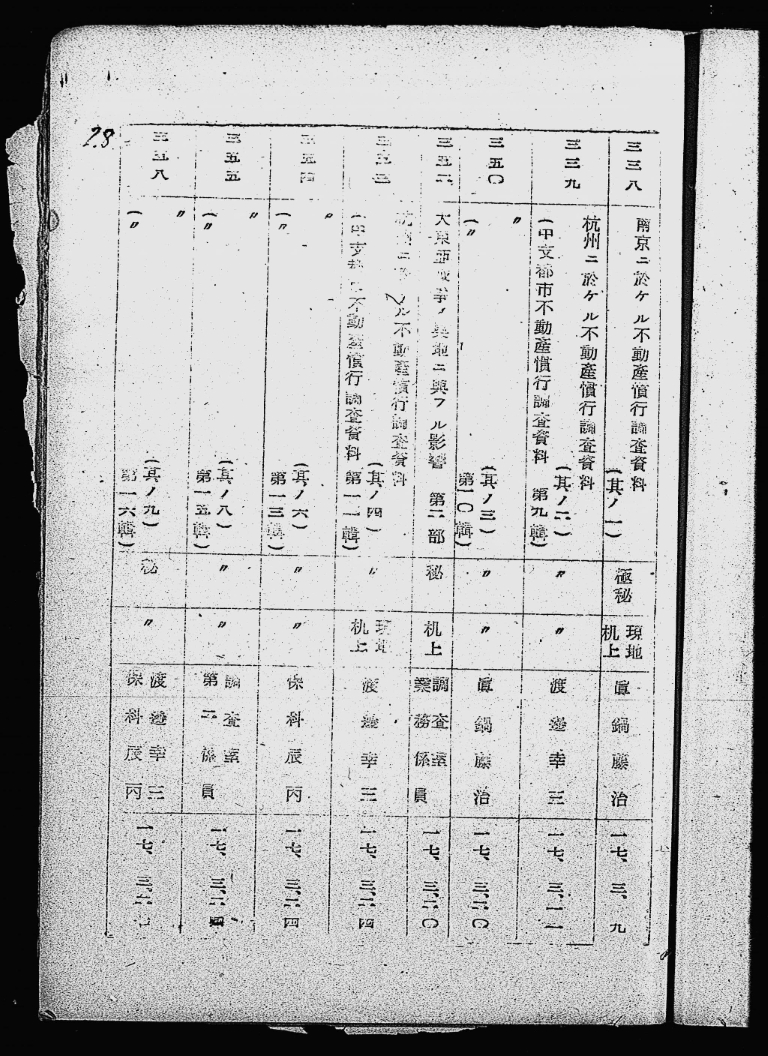 28
三三八
南京ニ於ケル不動産慣行調査資料
(其ノ一)
極秘
現地
机上
眞鍋藤治
一七、三、九
三三九
杭州ニ於ケル不動産慣行調査資料
(其ノ二)
(中支都市不動産慣行調査資料 第九輯)
〃
〃
渡邊幸三
一七、三、一一
三五〇
〃
(其ノ三)
(〃
第一〇輯)
〃
〃
眞鍋藤治
一七、三、二〇
三五二
大東亞戰爭ノ奥地ニ與フル影響 第二部
秘
机上
調査室
業務係員
一七、三、二〇
杭州ニ於ケル不動産慣行調査資料
(其ノ四)
(中支都市不動産慣行調査資料 第一一輯)
〃
現地
机上
渡邊幸三
一七、三、二四
三五四
〃
(其ノ六)
(〃
第一三輯)
〃
〃
保科辰丙
一七、三、二四
三五五
〃
(其ノ八)
(〃
第一五輯)
〃
〃
調査室
第二係員
一七、三、二四
三五八
〃
(其ノ九)
(〃
第一六輯)
秘
〃
渡邊幸三
保科辰丙
一七、三、二